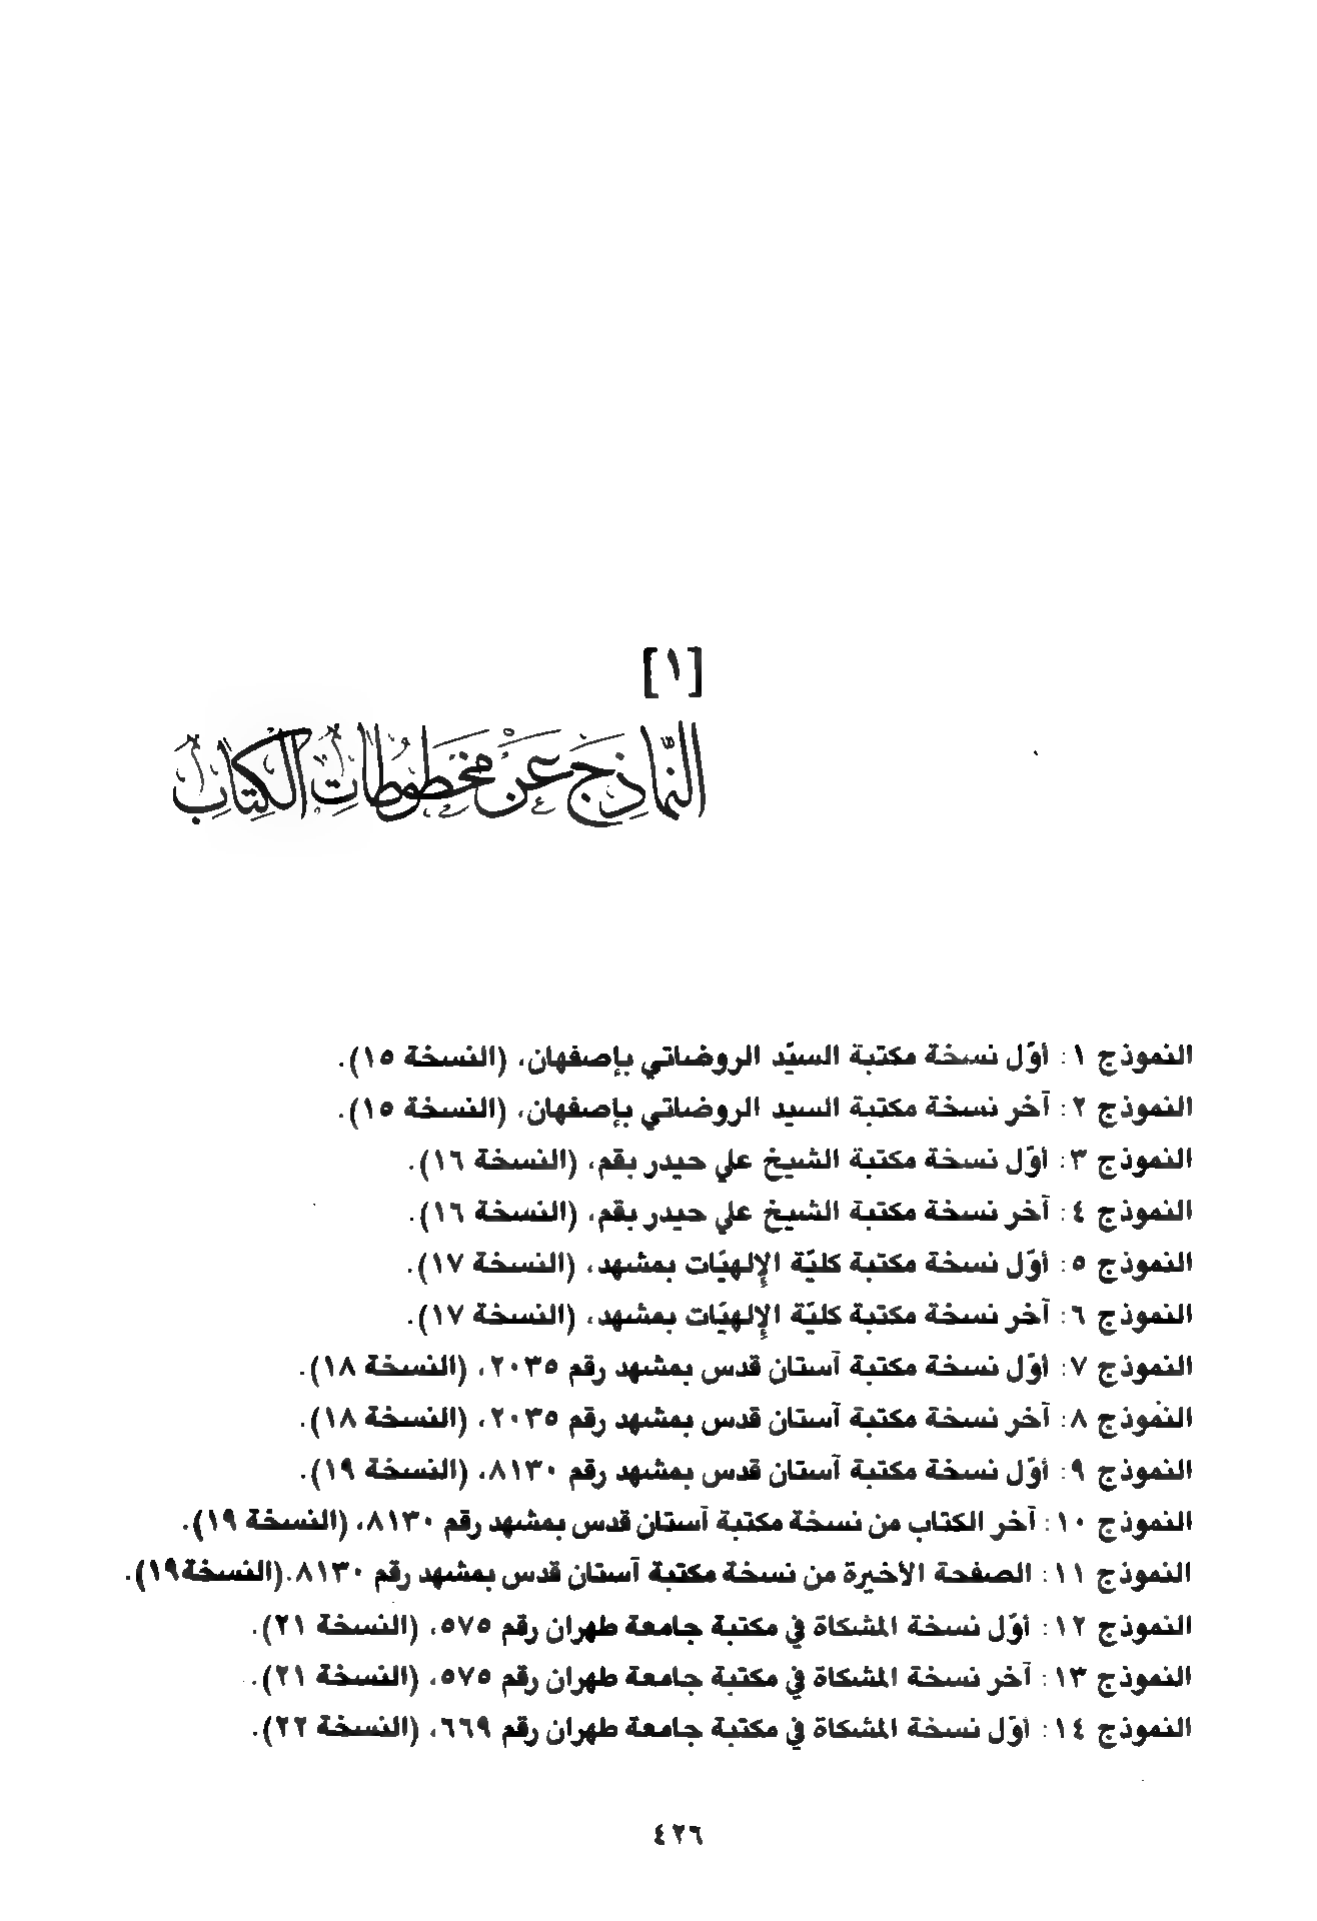 [١]
النَّماذِج عَنْ مَخطوطاتِ الكِتابِ
النموذج ١: أوّل نسخة مكتبة السيّد الروضاتي بإصفهان، (النسخة ١٥).
النموذج ٢: آخر نسخة مكتبة السيد الروضاتي بإصفهان، (النسخة ١٥).
النموذج ٣: أوّل نسخة مكتبة الشيخ علي حيدر بقم، (النسخة ١٦).
النموذج ٤: آخر نسخة مكتبة الشيخ علي حيدر بقم، (النسخة ١٦).
النموذج ٥: أوّل نسخة مكتبة كليّة الإلهيّات بمشهد، (النسخة ١٧).
النموذج ٦: آخر نسخة مكتبة كليّة الإلهيّات بمشهد، (النسخة ١٧).
النموذج ٧: أوّل نسخة مكتبة آستان قدس بمشهد رقم ٢٠٣٥، (النسخة ١٨).
النموذج ٨: آخر نسخة مكتبة آستان قدس بمشهد رقم ٢٠٣٥، (النسخة ١٨).
النموذج ٩: أوّل نسخة مكتبة آستان قدس بمشهد رقم ٨١٣٠، (النسخة ١٩).
النموذج ١٠: آخر الكتاب من نسخة مكتبة آستان قدس بمشهد رقم ٨١٣٠، (النسخة ١٩).
النموذج ١١: الصفحة الأخيرة من نسخة مكتبة آستان قدس بمشهد رقم ٨١٣٠.(النسخة١٩).
النموذج ١٢: أوّل نسخة المشكاة في مكتبة جامعة طهران رقم ٥٧٥، (النسخة ٢١).
النموذج ١٣: آخر نسخة المشكاة في مكتبة جامعة طهران رقم ٥٧٥، (النسخة ٢١).
النموذج ١٤: أوّل نسخة المشكاة في مكتبة جامعة طهران رقم ٦٦٩، (النسخة ٢٢).
٤٢٦